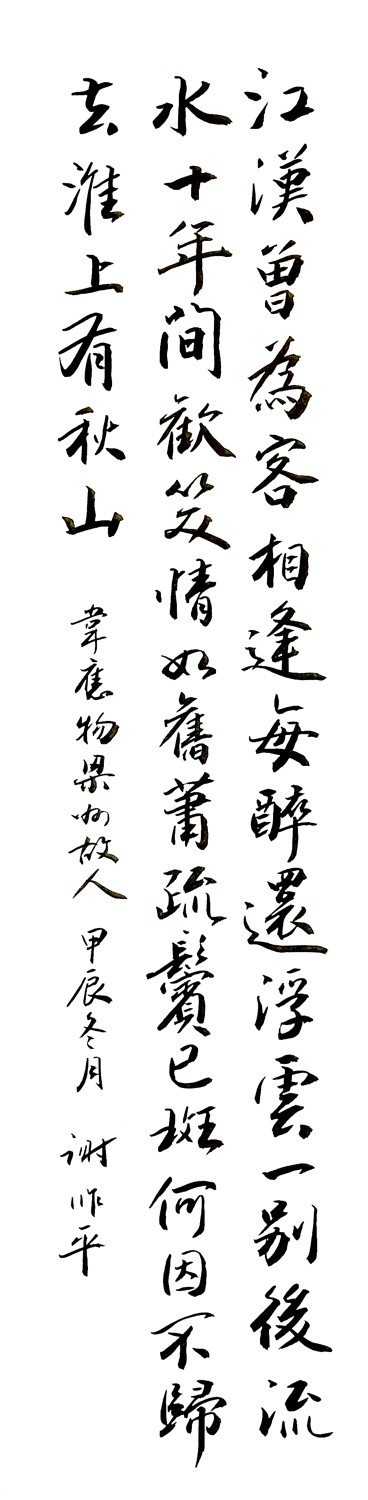 江漢曾為客相逢每醉還浮雲一别後流
水十年間歡笑情如舊蕭疏鬢已斑何因不歸
去淮上有秋山
韋應物梁州故人 甲辰冬月 谢作平